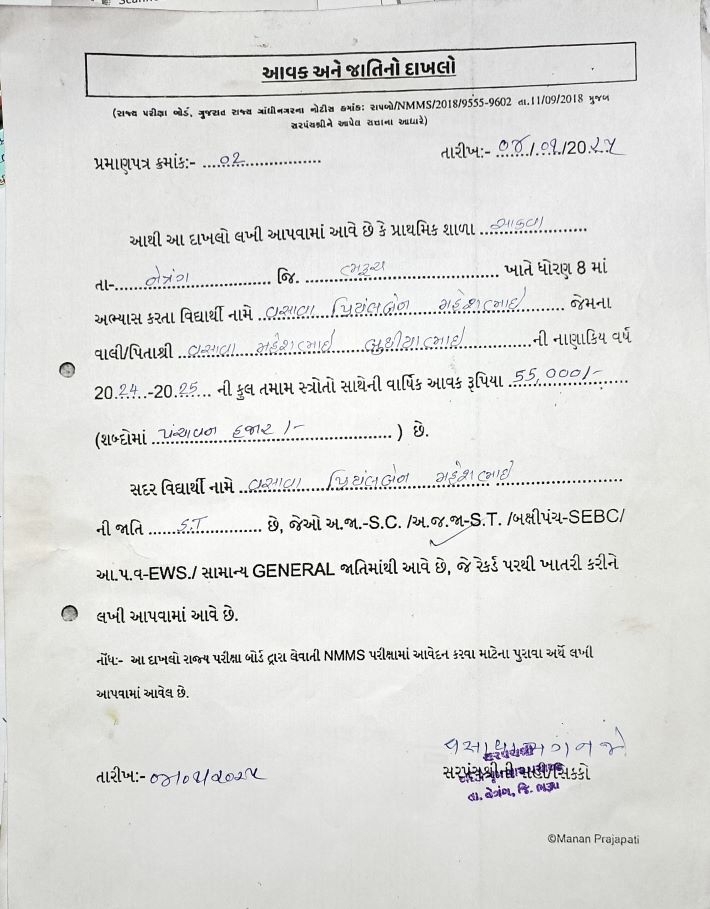 આવક અને જાતિનો દાખલો
(રાજ્ય પરીક્ષા બોર્ડ, ગુજરાત રાજ્ય ગાંધીનગરના નોટીસ ક્રમાંક: રાપબો/NMMS/2018/9555-9602 તા.11/09/2018 મુજબ
સરપંચશ્રીને આપેલ સત્તાના આધારે)
પ્રમાણપત્ર ક્રમાંક:- ....૦૨.... તારીખ:- .../.../20.૨૫
આથી આ દાખલો લખી આપવામાં આવે છે કે પ્રાથમિક શાળા
તા-...નેત્રંગ... જિ. ...ભરૂચ... ખાતે ધોરણ 8 માં
અભ્યાસ કરતા વિદ્યાર્થી નામે ..વસાવા પ્રિયંલબેન મહેશભાઇ... જેમના
વાલી/પિતાશ્રી ..વસાવા મહેશભાઇ બુધીયાભાઇ...ની નાણાકિય વર્ષ
20.24.-20.25... ની કુલ તમામ સ્ત્રોતો સાથેની વાર્ષિક આવક રૂપિયા .55,000/-...
(શબ્દોમાં ..પંચાવન હજાર /-...) છે.
સદર વિદ્યાર્થી નામે ..વસાવા પ્રિયંલબેન મહેશભાઇ...
ની જાતિ ....S.T.... છે, જેઓ અ.જા.-S.C. /અ.જ.જા-S.T. /બક્ષીપંચ-SEBC/
આ.પ.વ-EWS./ સામાન્ય GENERAL જાતિમાંથી આવે છે, જે રેકર્ડ પરથી ખાતરી કરીને
લખી આપવામાં આવે છે.
નોંધ:- આ દાખલો રાજ્ય પરીક્ષા બોર્ડ દ્રારા લેવાતી NMMS પરીક્ષામાં આવેદન કરવા માટેના પુરાવા અર્થે લખી
આપવામાં આવેલ છે.
તારીખ:-
સરપંચશ્રી
સરપંચશ્રીની સહી/સિક્કો
તા. નેત્રંગ, જિ. ભરૂચ
©Manan Prajapati